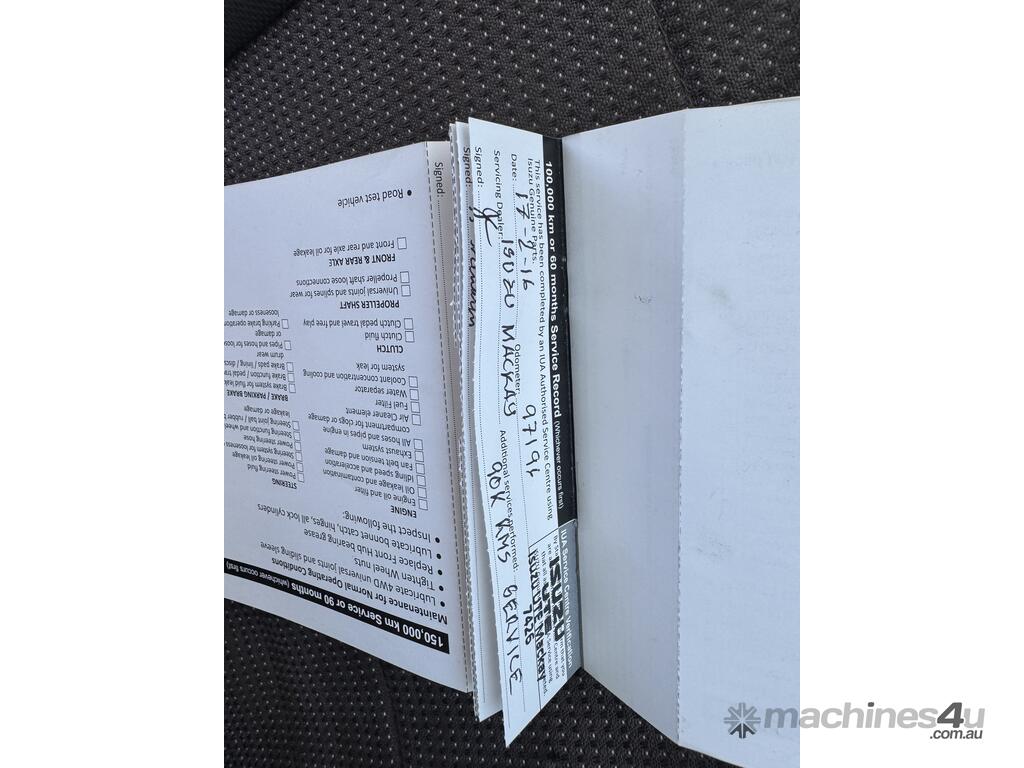 100,000 km or 60 months Service Record (Whichever occurs first)
This service has been completed by an IUA Authorised Service Centre using
Isuzu Genuine Parts.
Date: Odometer: 97196
Servicing Dealer: ISUZU MACKAY Additional services performed: 90K KMS SERVICE
Signed:
IUA Service Centre Verification
ISUZU
UTE
ISUZU UTE Mackay
7426
Signed:
Signed:
150,000 km Service or 90 months (whichever occurs first)
Maintenance for Normal Operating Conditions
• Lubricate 4WD universal joints and sliding sleeve
• Tighten Wheel nuts
• Replace Front Hub bearing grease
• Lubricate bonnet catch, hinges, all lock cylinders
• Inspect the following:
ENGINE
Engine oil and filter
Oil leakage and contamination
Idling speed and acceleration
Fan belt tension and damage
Exhaust system
All hoses and pipes in engine
compartment for clogs or damage
Air Cleaner element
Fuel Filter
Water separator
Coolant concentration and cooling
system for leak
CLUTCH
Clutch fluid
Clutch pedal travel and free play
PROPELLER SHAFT
Universal joints and splines for wear
Propeller shaft loose connections
FRONT & REAR AXLE
Front and rear axle for oil leakage
• Road test vehicle
STEERING
Power steering fluid
Power steering oil leakage
Steering system for looseness
Power steering hose
Steering function
Steering joint ball
leakage or damage
BRAKE / PARKING BRAKE
Brake system for fluid
Brake function
Brake pads / lining / discs
drum wear
Pipes and hoses for
or damage
Parking brake operation
looseness or damage
machines4u
.com.au